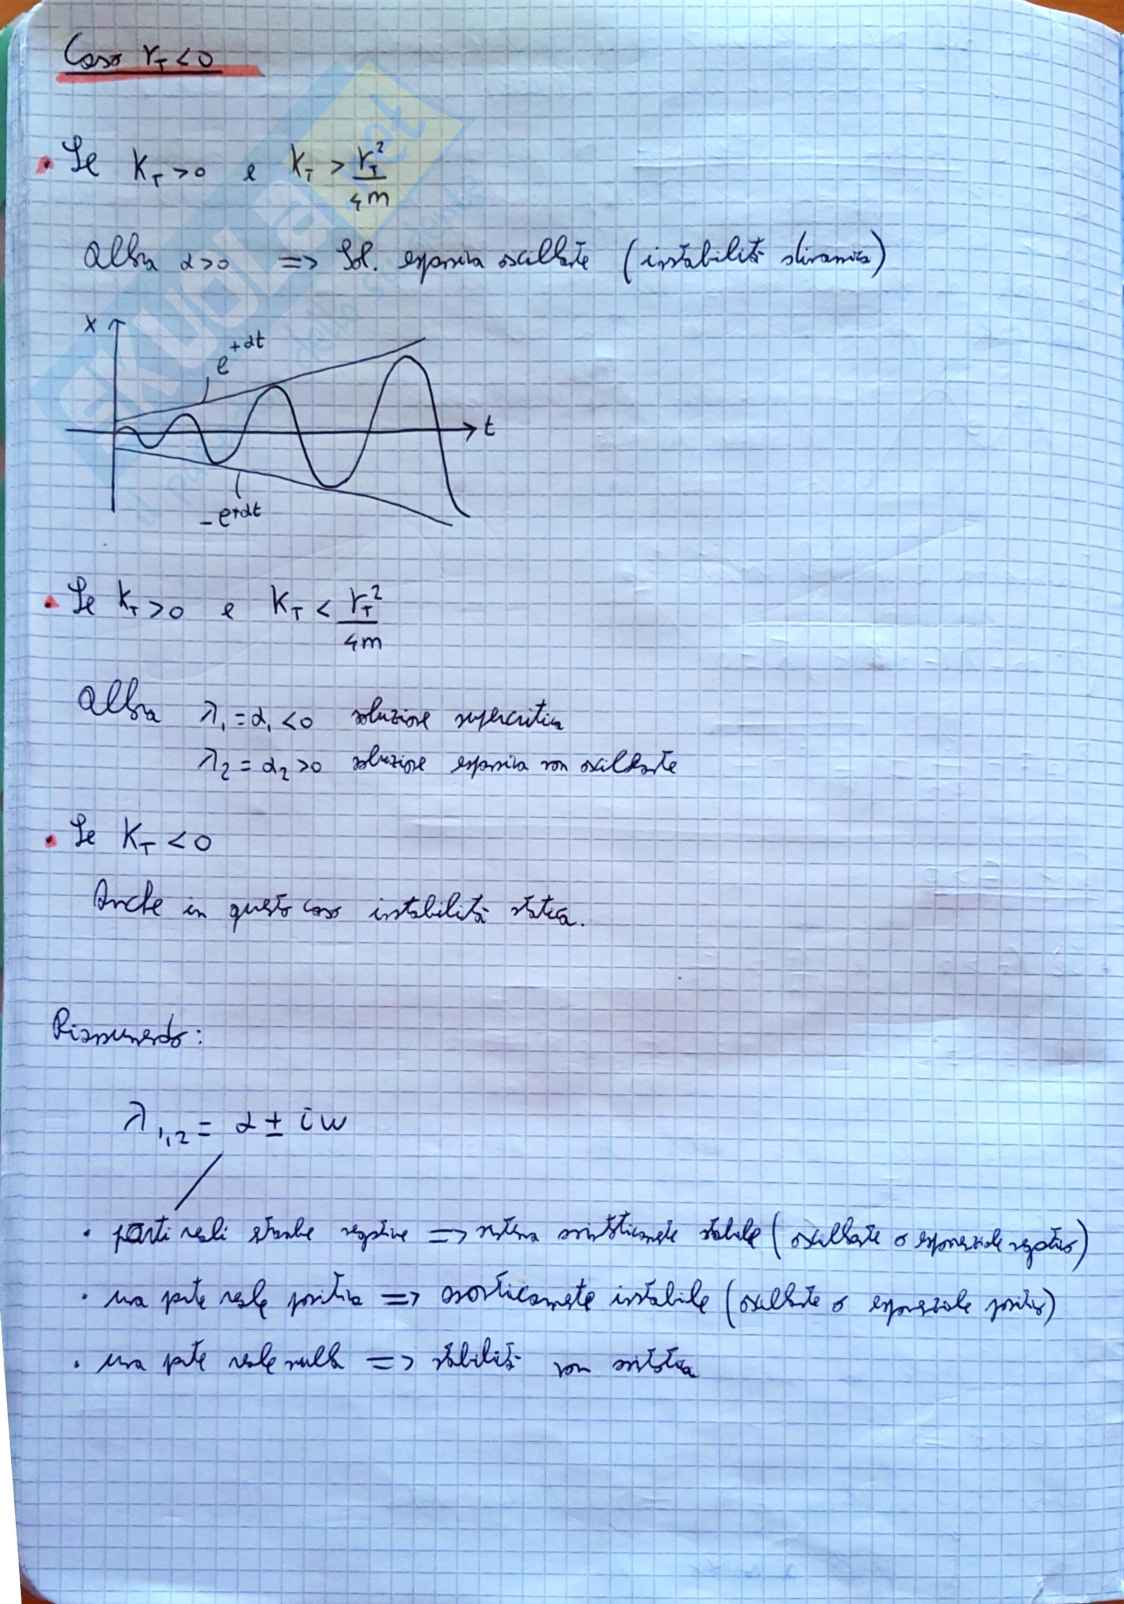 Caso r_T < 0
• Se K_T > 0 e K_T > r_T² / 4m
Allora α > 0 => Sol. espansiva oscillante (instabilità dinamica)
x
e^{+αt}
t
-e^{+αt}
• Se K_T > 0 e K_T < r_T² / 4m
Allora λ₁ = α₁ < 0 soluzione supercritica
λ₂ = α₂ > 0 soluzione espansiva non oscillante
• Se K_T < 0
Anche in questo caso instabilità statica.
Riassumendo:
λ₁,₂ = α ± iω
• parti reali entrambe negative => sistema asintoticamente stabile (oscillante o esponenziale negativo)
• una parte reale positiva => instabile (oscillante o esponenziale positivo)
• una parte reale nulla => stabilità non asintotica
SKUOLA.net